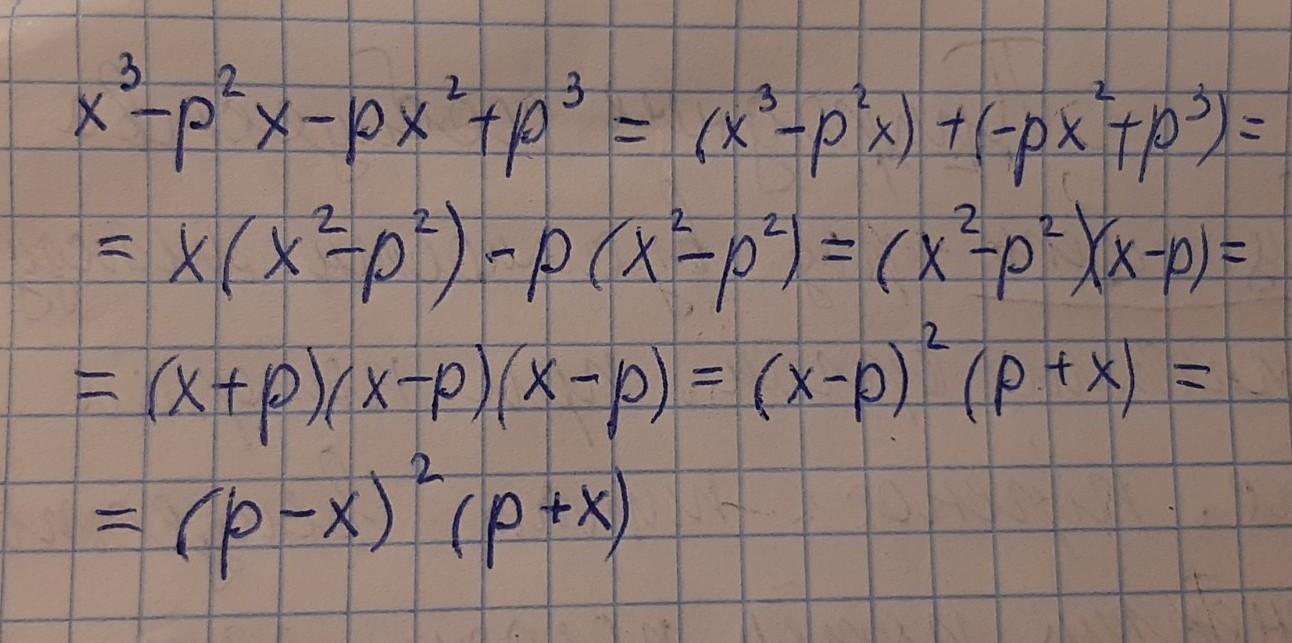 x³-p²x-px²+p³ = (x³-p²x)+(-px²+p³)=
= x(x²-p²)-p(x²-p²)=(x²-p²)(x-p)=
= (x+p)(x-p)(x-p)=(x-p)²(p+x)=
= (p-x)²(p+x)